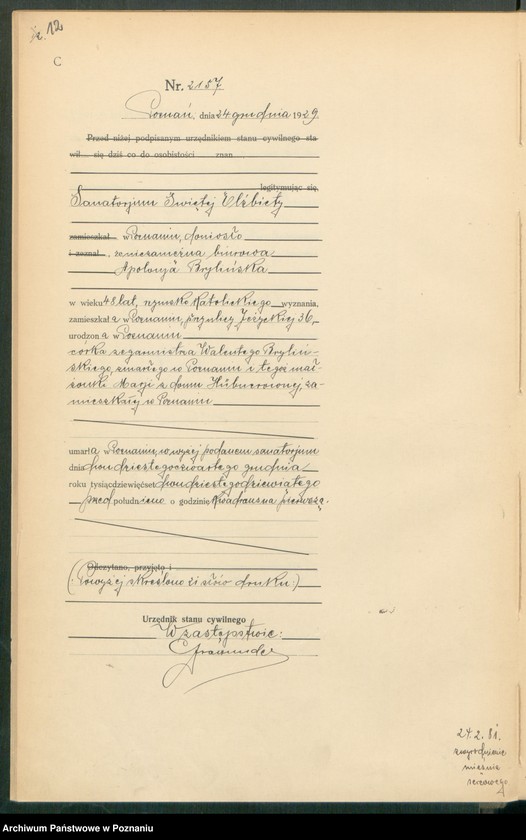 12
C
Nr. 2157
Poznań, dnia 24 grudnia 1929.
Przed niżej podpisanym urzędnikiem stanu cywilnego sta
wił się dziś co do osobistości znan
legitymując się
Sanatorjum Świętej Elżbiety
zamieszkał w Poznaniu, doniosło
i zeznał, że niezamężna biurowa
Apolonja Brylińska
w wieku 48 lat, rzymsko katolickiego wyznania,
zamieszkała w Poznaniu, przy ulicy Jeżyckiej 36,
urodzona w Poznaniu
córka zegarmistrza Walentego Bryliń-
skiego, zmarłego w Poznaniu i tegoż mał-
żonki Marji z domu za-
mieszkałej w Poznaniu
umarła w Poznaniu, w wyżej podanem sanatorjum
dnia dwudziestegoczwartego grudnia
roku tysiącdziewięćset dwudziestegodziewiątego
przed południem o godzinie pierwszą.
Odczytano, przyjęto i
(:Powyżej skreślono 21 słów druku:)
Urzędnik stanu cywilnego
W zastępstwie:
24.2.81.
zwyrodnienie
mięśnia
sercowego
Archiwum Państwowe w Poznaniu